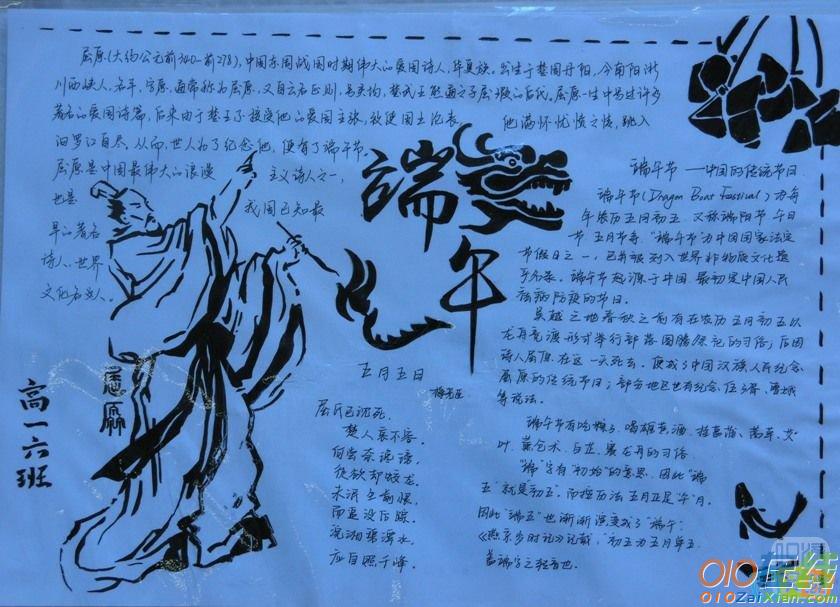 屈原(大约公元前340—前278),中国东周战国时期伟大的爱国诗人,华夏族。出生于楚国丹阳,今南阳淅
川西峡人,名平,字原,通常称为屈原,又自云名正则,号灵均,楚武王熊通之子屈瑕的后代。屈原一生中写过许多
著名的爱国诗篇,后来由于楚王不接受他的爱国主张,致使国土沦丧
他满怀忧愤之情,跳入
汨罗江自尽,从而,世人为了纪念他,便有了端午节。
屈原是中国最伟大的浪漫
主义诗人之一,
也是
我国已知最
早的著名
诗人,世界
文化名人。
屈原
高一六班
端午
五月五日
梅尧臣
屈氏已沉死,
楚人哀不容。
何尝奈谗谤,
徒欲却蛟龙。
未泯生前恨,
而追没后踪。
沅湘碧潭水,
应自照千峰。
端午节——中国的传统节日
端午节(Dragon Boat Festival)为每
年农历五月初五,又称端阳节、午日
节、五月节等。"端午节"为中国国家法定
节假日之一,已并被列入世界非物质文化遗
产名录。端午节起源于中国,最初是中国人民
祛病防疫的节日。
吴越之地春秋之前有在农历五月初五以
龙舟竞渡形式举行部落图腾祭祀的习俗;后因
诗人屈原在这一天死去,便成了中国汉族人民纪念
屈原的传统节日;部分地区也有纪念伍子胥、曹娥
等说法。
端午节有吃粽子,喝雄黄酒,挂菖蒲、蒿草、艾
叶,薰苍术、白芷,赛龙舟的习俗
"端"字有"初始"的意思,因此"端
五"就是"初五"。而按历法五月正是"午"月,
因此"端五"也渐渐演变成了"端午"。
《燕京岁时记》记载:"初五为五月单五,
盖端字之转音也。
010在线
010ZaiXian.com